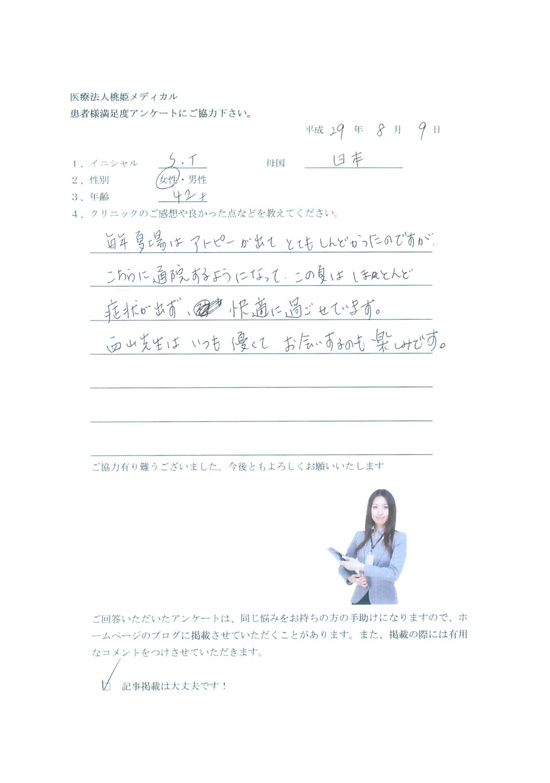 医療法人桃姫メディカル
患者様満足度アンケートにご協力下さい。
平成 29 年 8 月 9 日
1、イニシャル S.T 母国 日本
2、性別 女性・男性
3、年齢 42才
4、クリニックのご感想や良かった点などを教えてください。
毎年夏場はアトピーが出てとてもしんどかったのですが、
こちらに通院するようになって、この夏はほとんど
症状が出ず、快適に過ごせています。
西山先生はいつも優くて お会いするのも楽しみです。
ご協力有り難うございました。今後ともよろしくお願いいたします
ご回答いただいたアンケートは、同じ悩みをお持ちの方の手助けになりますので、ホ
ームページのブログに掲載させていただくことがあります。また、掲載の際には有用
なコメントをつけさせていただきます。
☑ 記事掲載は大丈夫です！